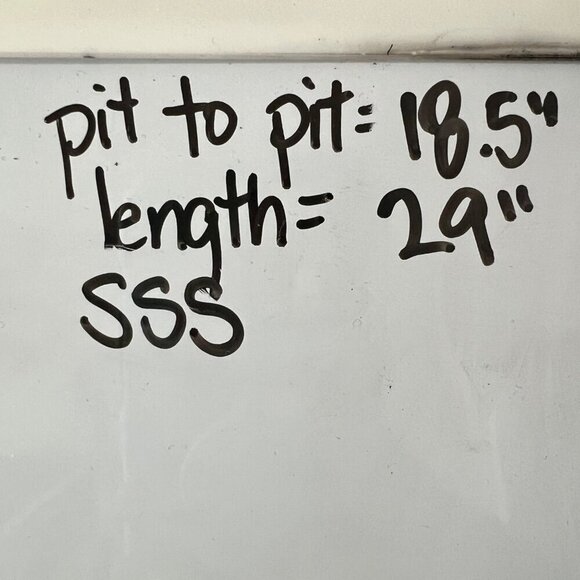 pit to pit= 18.5"
length= 29"
SSS